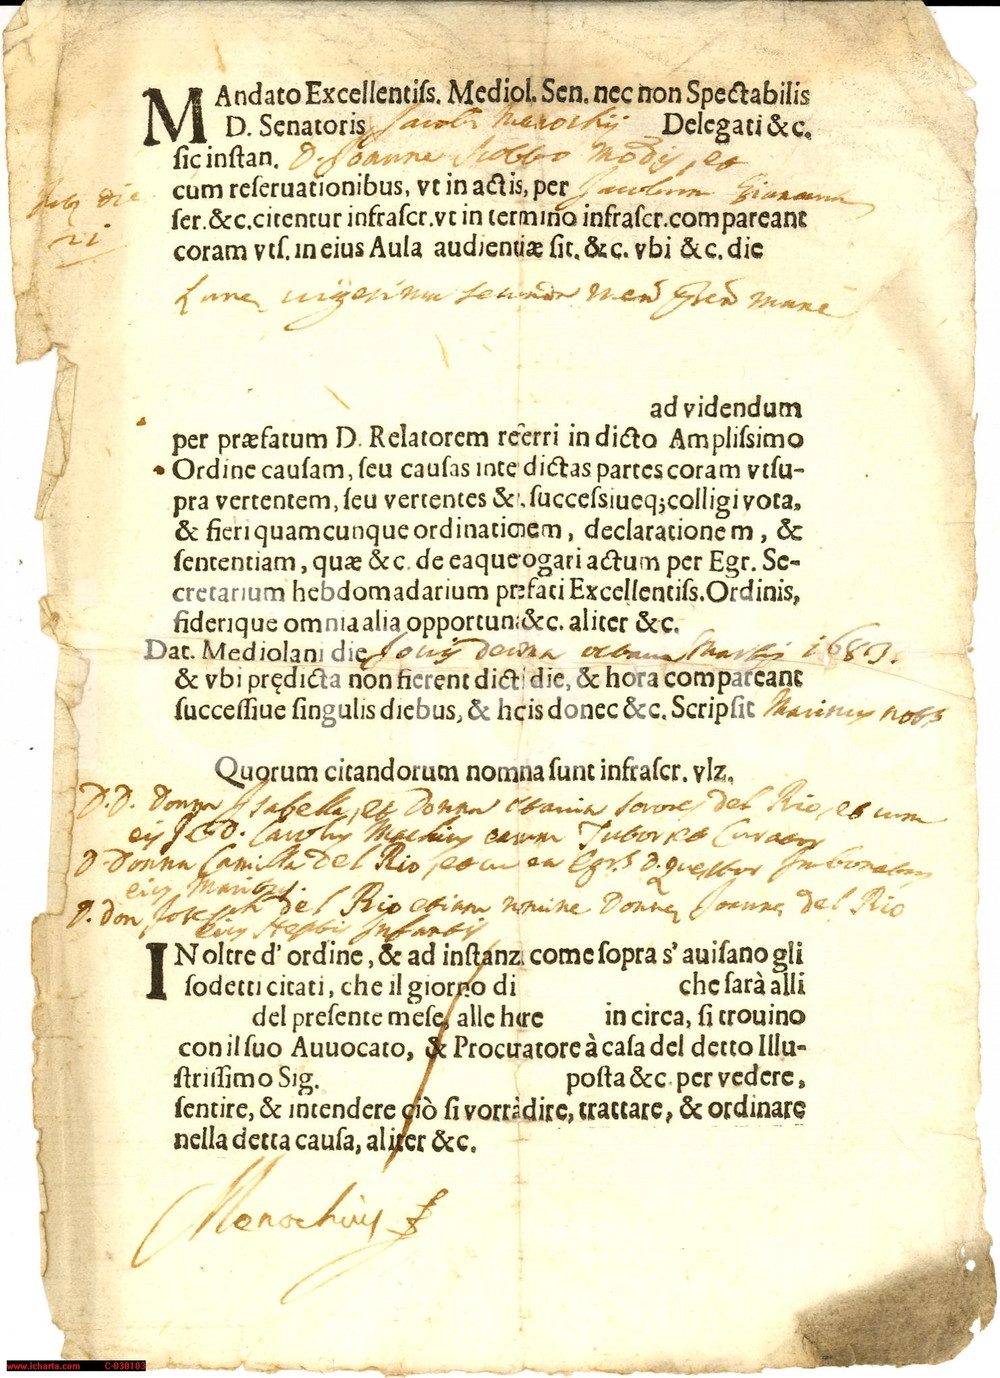 MAndato Excellentiſs. Mediol. Sen. nec non Spectabilis
D. Senatoris Jacobi Menochij Delegati &c.
ſic inſtan. D. Joanne
cum reſeruationibus, vt in actis, per Jacobum
ſer. &c. citentur infraſcr. vt in termino infraſcr. compareant
coram vtſ. in eius Aula audientiæ ſit. &c. vbi &c. die
Lune vigesima mane
ad videndum
per præfatum D. Relatorem referri in dicto Ampliſſimo
Ordine cauſam, ſeu cauſas inte dictas partes coram vtſu-
pra vertentem, ſeu vertentes &c. ſucceſsiueq; colligi vota,
& fieri quamcunque ordinationem, declarationem, &
ſententiam, quæ &c. de eaque rogari actum per Egr. Se-
cretarium hebdomadarium præfati Excellentiſs. Ordinis,
fiderique omnia alia opportuna &c. aliter &c.
Dat. Mediolani die Jovis decima octava Martij 1683.
& vbi prędicta non fierent dict die, & hora compareant
ſucceſſiue ſingulis diebus, & horis donec &c. Scripſit
Quorum citandorum nomna ſunt infraſcr. vlz.
D.D. Donna Isabella, et Donna sorores del Rio, et cum
eis J.C.D. Carolus
D. Donna Camilla del Rio
eius Maritus.
D. don Joseph del Rio etiam nomine Donnę Joannę del Rio
eius
INoltre d' ordine, & ad inſtanz. come ſopra s' auiſano gli
ſodetti citati, che il giorno di che ſarà alli
del preſente meſe, alle hore in circa, ſi trouino
con il ſuo Auuocato, & Procuratore à caſa del detto Illu-
ſtriſſimo Sig. poſta &c. per vedere,
ſentire, & intendere ciò ſi vorrà dire, trattare, & ordinare
nella detta cauſa, aliter &c.
Menochius
www.icharta.com C-030103